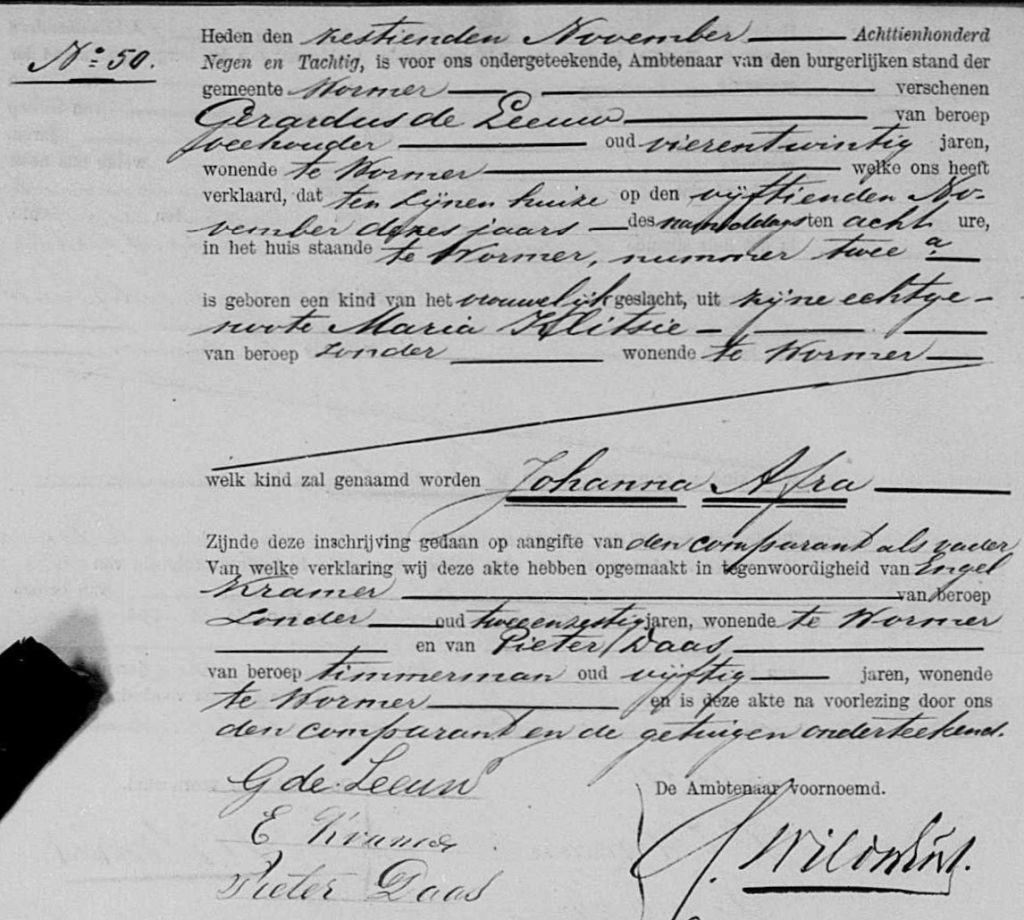 Nº 50.
Heden den zestienden November Achttienhonderd
Negen en Tachtig, is voor ons ondergeteekende, Ambtenaar van den burgerlijken stand der
gemeente Wormer verschenen
Gerardus de Leeuw van beroep
veehouder oud vierentwintig jaren,
wonende te Wormer welke ons heeft
verklaard, dat ten zijnen huize op den vijftienden No-
vember dezes jaars des namiddags ten acht ure,
in het huis staande te Wormer, nummer twee a
is geboren een kind van het vrouwelijk geslacht, uit zijne echtge-
noote Maria Klitsie
van beroep zonder wonende te Wormer
welk kind zal genaamd worden Johanna Afra
Zijnde deze inschrijving gedaan op aangifte van den comparant als vader
Van welke verklaring wij deze akte hebben opgemaakt in tegenwoordigheid van Engel
Kramer van beroep
zonder oud tweeenzestig jaren, wonende te Wormer
en van Pieter Daas
van beroep timmerman oud vijftig jaren, wonende
te Wormer en is deze akte na voorlezing door ons
den comparant en de getuigen onderteekend.
G de Leeuw
De Ambtenaar voornoemd.
E Kramer
Pieter Daas